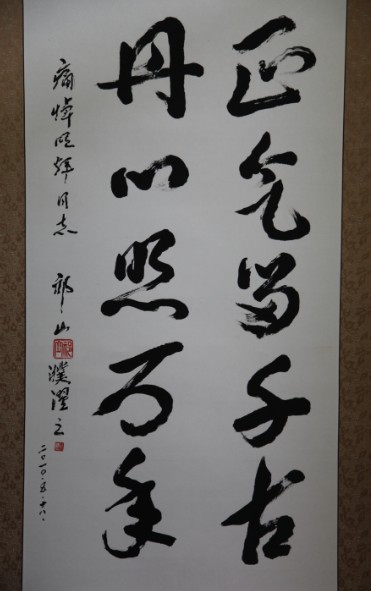 正气留千古
丹心照万年
痛悼明辉同志
郭山
濮澄之
二〇一〇.五.十八.